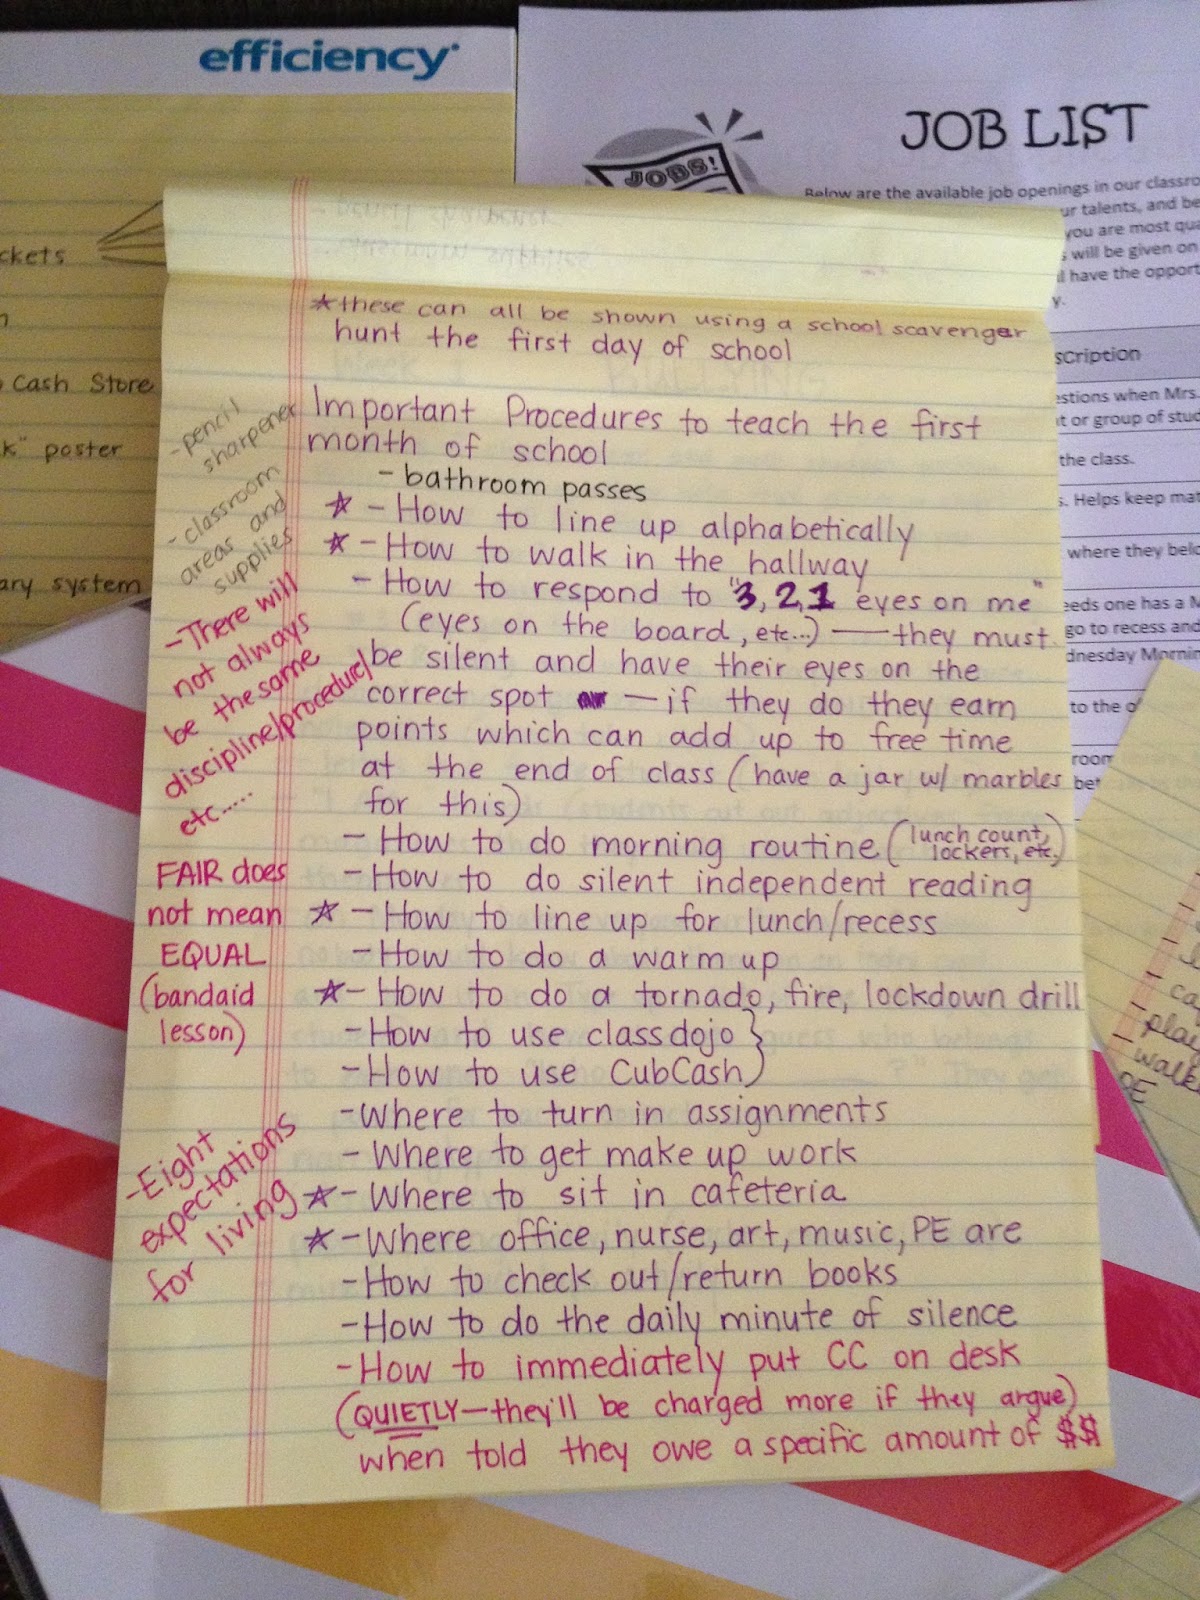 efficiency
JOB LIST
JOBS!
Below are the available job openings in our
talents, and
you are most
will be given on
have the
ckets
Cash Store
poster
system
scription
when Mrs.
or group of
the class.
Helps keep
where they
one has a
go to recess and
to the
*these can all be shown using a school scavenger
hunt the first day of school
Important Procedures to teach the first
month of school
- bathroom passes
☆ - How to line up alphabetically
☆ - How to walk in the hallway
- How to respond to "3, 2, 1 eyes on me"
(eyes on the board, etc...) — they must
be silent and have their eyes on the
correct spot — if they do they earn
points which can add up to free time
at the end of class (have a jar w/ marbles
for this)
- How to do morning routine (lunch count,
lockers, etc.)
- How to do silent independent reading
☆ - How to line up for lunch/recess
- How to do a warm up
☆ - How to do a tornado, fire, lockdown drill
- How to use classdojo }
- How to use CubCash
- Where to turn in assignments
- Where to get make up work
☆ - Where to sit in cafeteria
☆ - Where office, nurse, art, music, PE are
- How to check out/return books
- How to do the daily minute of silence
- How to immediately put CC on desk
(QUIETLY — they'll be charged more if they argue)
when told they owe a specific amount of $$
- pencil
sharpener
- classroom
areas and
supplies
- There will
not always
be the same
discipline/procedure/
etc.....
FAIR does
not mean
EQUAL
(bandaid
lesson)
- Eight
expectations
for living
PE